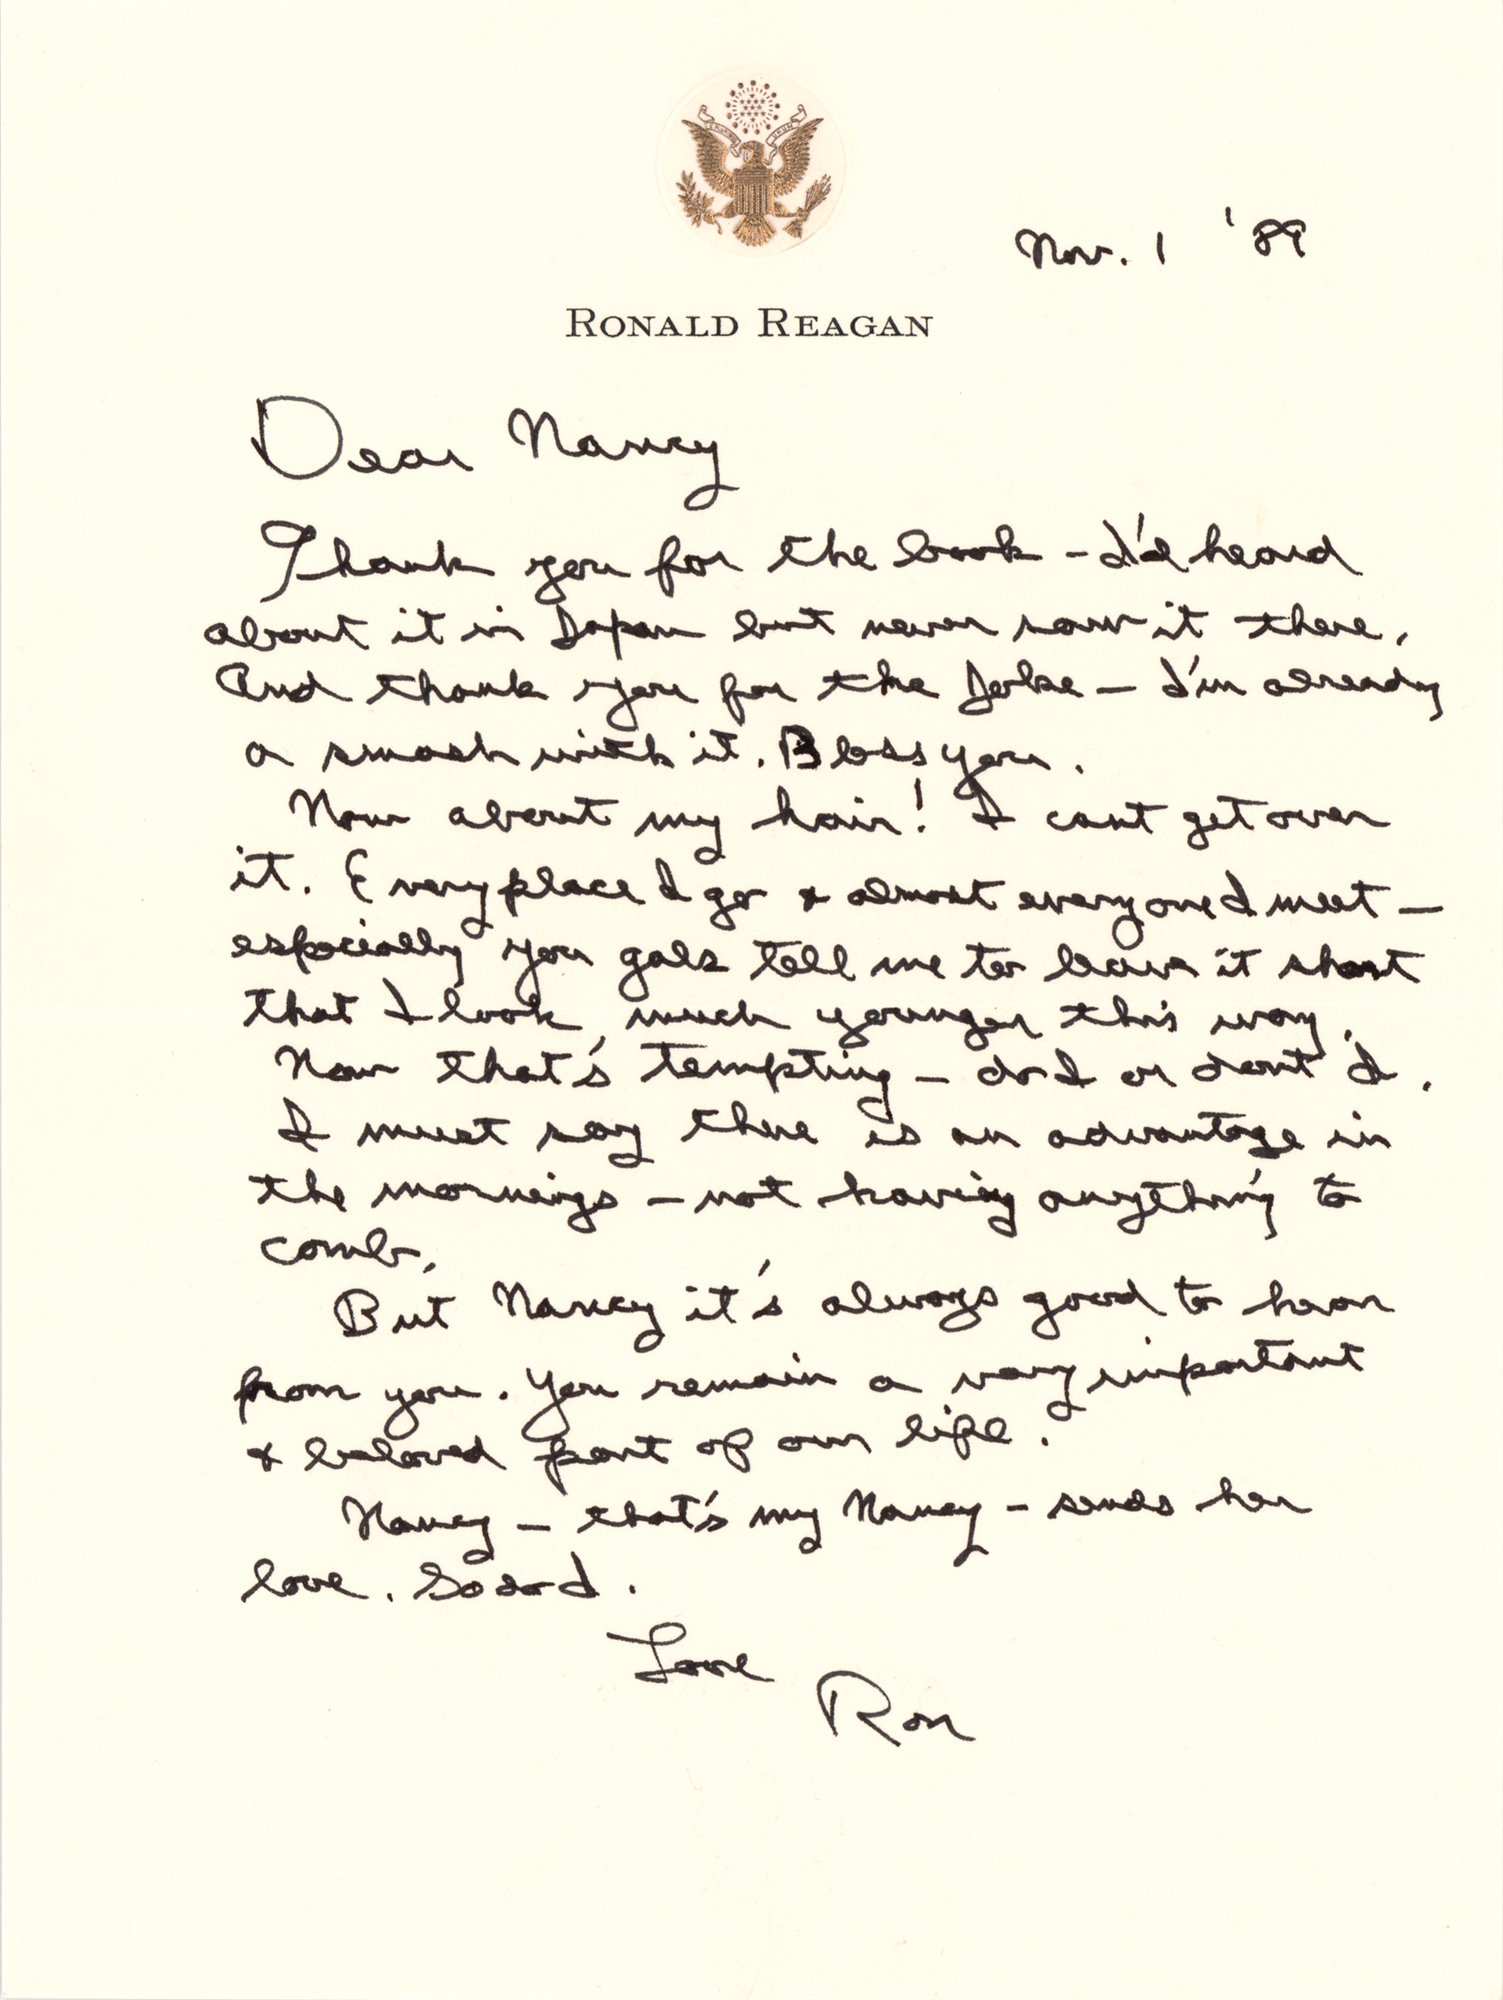 Nov. 1 '89
RONALD REAGAN
Dear Nancy
Thank you for the book – I'd heard
about it in Japan but never saw it there.
And thank you for the Joke – I'm already
a smash with it. Bless you.
Now about my hair! I cant get over
it. Every place I go & almost everyone I meet –
especially you gals tell me to leave it short
that I look much younger this way.
Now that's tempting – do I or dont I.
I must say there is an advantage in
the mornings – not having anything to
comb.
But Nancy it's always good to hear
from you. You remain a very important
& beloved part of our life.
Nancy – that's my Nancy – sends her
love. So do I.
Love
Ron